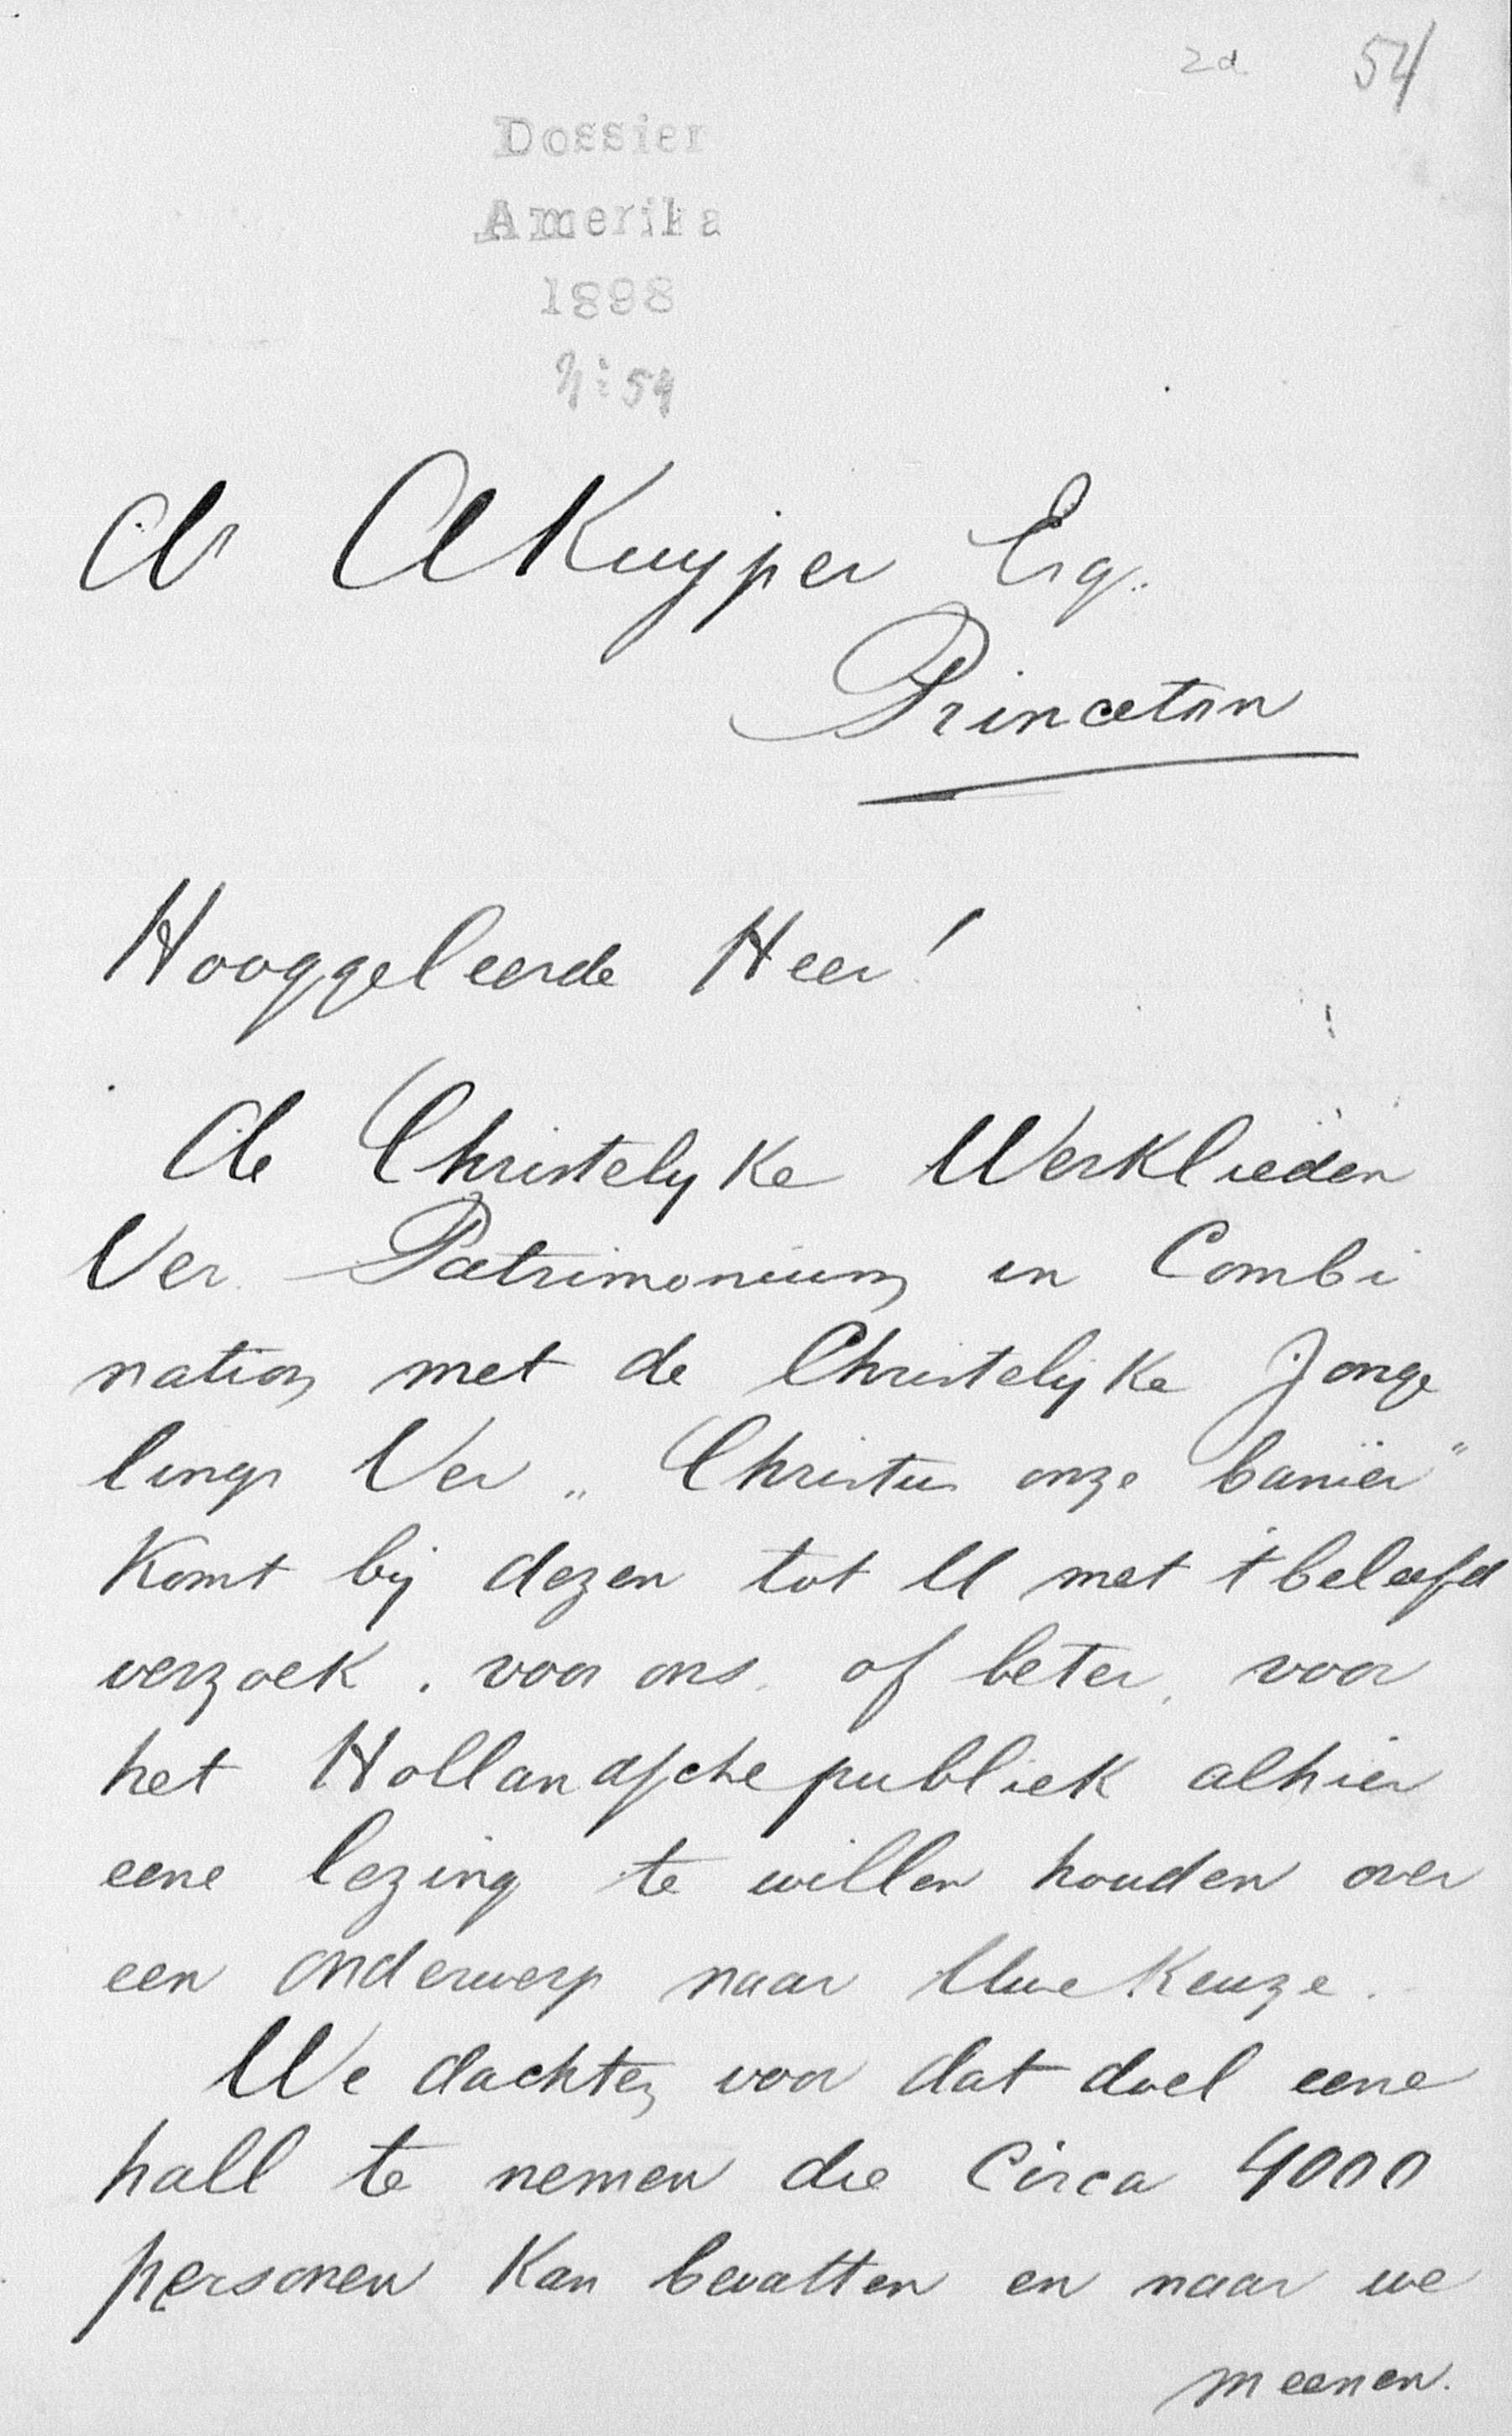 2d 54
Dossier
Amerika
1898
N: 54
Dr A Kuyper Esq.
Princeton
Hooggeleerde Heer!
De Christelyke Werklieden
Ver. Patrimonium in Combi
nation met de Christelijke Jonge
lings Ver „Christus onze banier"
Komt bij dezen tot U met 't beleefd
verzoek. voor ons, of beter, voor
het Hollandsche publiek alhier
eene lezing te willen houden over
een onderwerp naar Uwe Keuze.
We dachten voor dat doel eene
hall te nemen die Circa 4000
personen Kan bevatten en naar we
meenen.